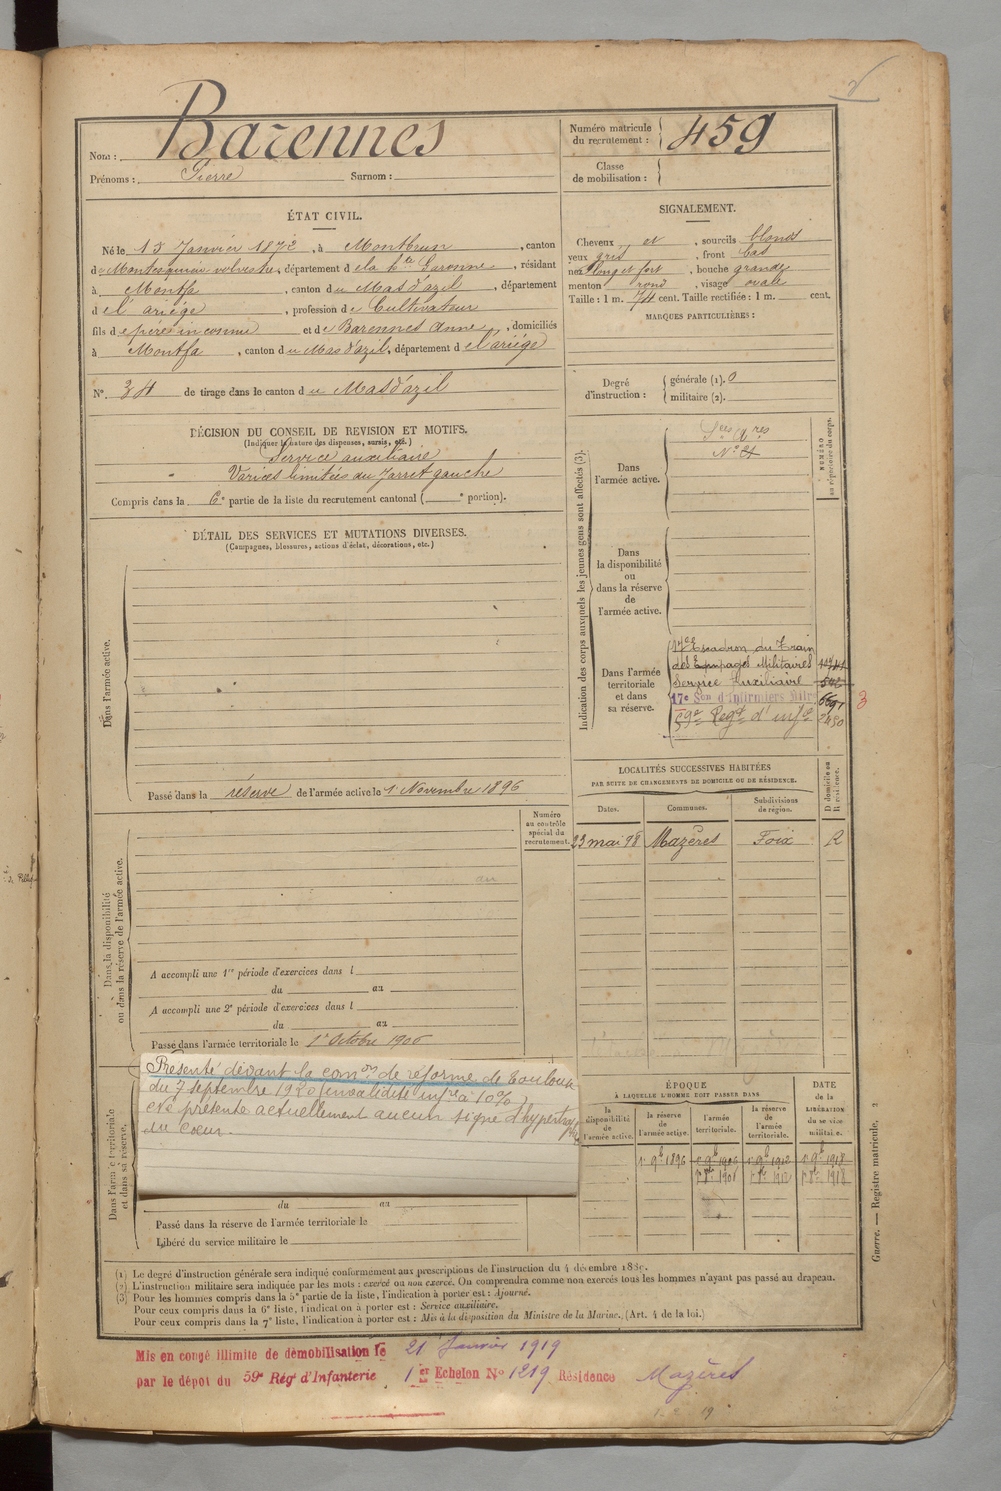 Nom : Barennes
Prénoms : Pierre Surnom :
Numéro matricule du recrutement : 459
Classe de mobilisation :
ÉTAT CIVIL.
Né le 15 Janvier 1872, à Montbrun, canton
de Montesquieu volvestre, département de la hte Garonne, résidant
à Montfa, canton du Mas d'azil, département
de l'ariége, profession de Cultivateur
fils de père inconnu et de Barennes Anne, domiciliés
à Montfa, canton du Mas d'azil, département de l'ariége
No. 34 de tirage dans le canton du Mas d'azil
DÉCISION DU CONSEIL DE REVISION ET MOTIFS.
(Indiquer la nature des dispenses, sursis, etc.)
Service auxiliaire
Varices limitées au Jarret gauche
Compris dans la 6e partie de la liste du recrutement cantonal ( e portion).
DÉTAIL DES SERVICES ET MUTATIONS DIVERSES.
(Campagnes, blessures, actions d'éclat, décorations, etc.)
Dans l'armée active.
Passé dans la réserve de l'armée active le 1 Novembre 1896
Numéro au contrôle spécial du recrutement.
Dans la disponibilité ou dans la réserve de l'armée active.
A accompli une 1re période d'exercices dans l
du au
A accompli une 2e période d'exercices dans l
du au
Passé dans l'armée territoriale le 1er Octobre 1906
Dans l'armée territoriale et dans sa réserve.
Présenté devant la comon de réforme de Toulouse
du 7 septembre 1920 (invalidité infre à 10%)
ne présente actuellement aucun signe d'hypertrophie
du coeur.
du au
Passé dans la réserve de l'armée territoriale le
Libéré du service militaire le
SIGNALEMENT.
Cheveux et, sourcils blonds
yeux gris, front bas
nez long et fort, bouche grande
menton rond, visage ovale
Taille : 1 m. 74 cent. Taille rectifiée : 1 m. cent.
MARQUES PARTICULIÈRES :
Degré d'instruction : générale (1). 0
militaire (2).
Indication des corps auxquels les jeunes gens sont affectés (3).
NUMÉRO au répertoire du corps.
Dans l'armée active.
Sces Qres
No 24
Dans la disponibilité ou dans la réserve de l'armée active.
Dans l'armée territoriale et dans sa réserve.
17e Escadron du Train
des Equipages Militaires
Service Auxiliaire
17e Son d'Infirmiers Milres
59e Regt d'infie
3
LOCALITÉS SUCCESSIVES HABITÉES
PAR SUITE DE CHANGEMENTS DE DOMICILE OU DE RÉSIDENCE.
Dates. Communes. Subdivisions de région. D domicile ou R résidence.
23 mai 98 Mazères Foix R
ÉPOQUE
À LAQUELLE L'HOMME DOIT PASSER DANS
DATE de la LIBÉRATION du service militaire.
la disponibilité de l'armée active. la réserve de l'armée active. l'armée territoriale. la réserve de l'armée territoriale.
1er 9bre 1896 1er 9bre 1906 1er 9bre 1912 1er 9bre 1918
1er 8bre 1906 1er 8bre 1912 1er 8bre 1918
(1) Le degré d'instruction générale sera indiqué conformément aux prescriptions de l'instruction du 4 décembre 1889.
(2) L'instruction militaire sera indiquée par les mots : exercé ou non exercé. On comprendra comme non exercés tous les hommes n'ayant pas passé au drapeau.
(3) Pour les hommes compris dans la 5e partie de la liste, l'indication à porter est : Ajourné.
Pour ceux compris dans la 6e liste, l'indication à porter est : Service auxiliaire.
Pour ceux compris dans la 7e liste, l'indication à porter est : Mis à la disposition du Ministre de la Marine. (Art. 4 de la loi.)
Guerre. — Registre matricule. 2
Mis en congé illimité de démobilisation le 21 Janvier 1919
par le dépot du 59e Régt d'Infanterie 1er Echelon No 1219 Résidence Mazères